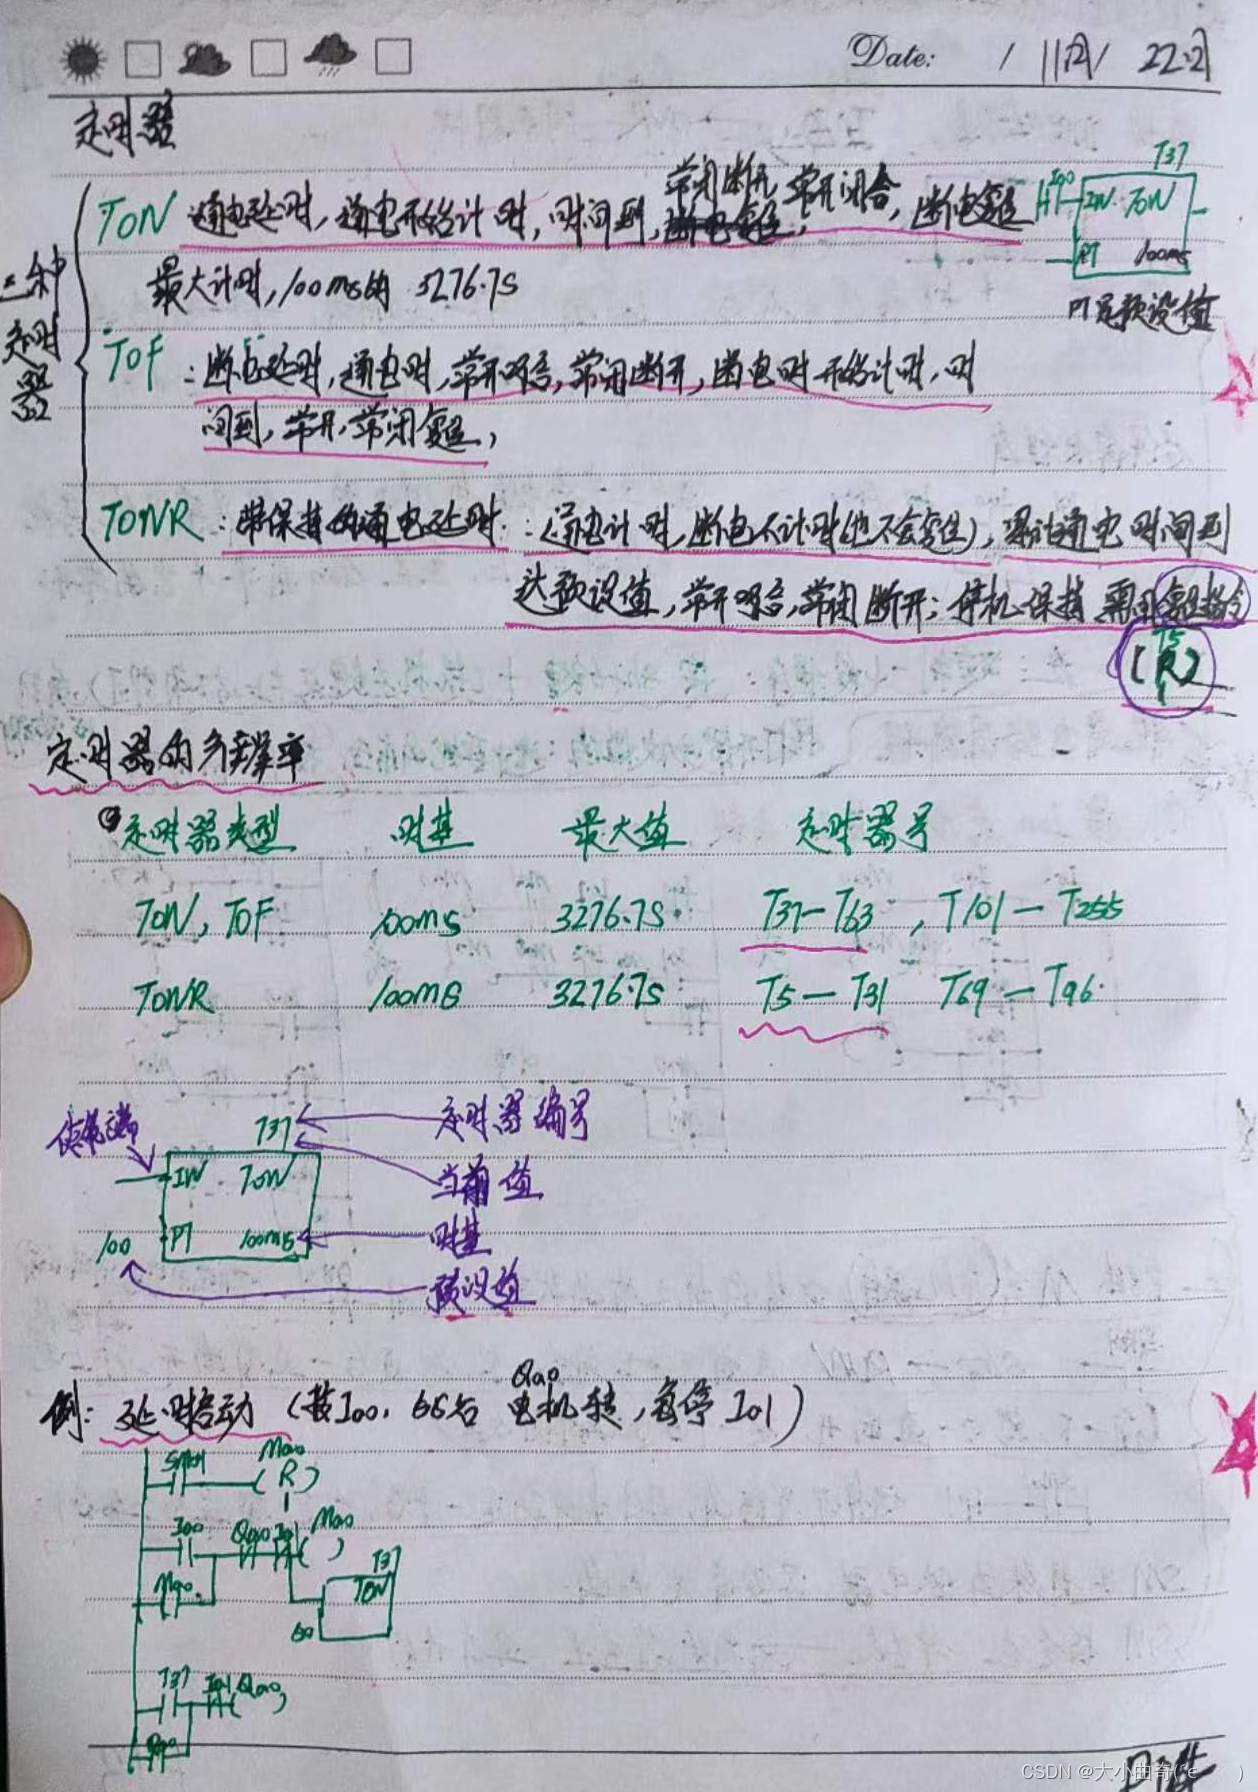 Date: / 11月/ 22日
定时器
三种定时器
TON 通电延时,通电开始计时,时间到,常闭断开,常开闭合,断电复位
I0.0 T37
IN TON
PT 100ms
PT是预设值
最大计时,100ms的 3276.7S
TOF:断电延时,通电时,常开闭合,常闭断开,断电时开始计时,时
间到,常开,常闭复位,
TONR:带保持的通电延时:通电计时,断电不计时(也不会复位),累计通电时间到
达预设值,常开闭合,常闭断开;停机保持 需用复位指令
T5
(R)
1
定时器的分辨率
定时器类型 时基 最大值 定时器号
TON, TOF 100ms 3276.7S T37—T63, T101—T255
TONR 100ms 3276.7S T5—T31 T69—T96
使能端
T37 定时器编号
IN TON 当前值
100 PT 100ms 时基
预设值
例:延时启动(按I0.0,6S后 Q0.0 电机转,急停I0.1)
SM0.1 M0.0
(R)
1
I0.0 Q0.0 I0.1 M0.0
( )
M0.0 T37
TON
60
T37 I0.1 Q0.0
( )
Q0.0
CSDN @大小曲奇(e )